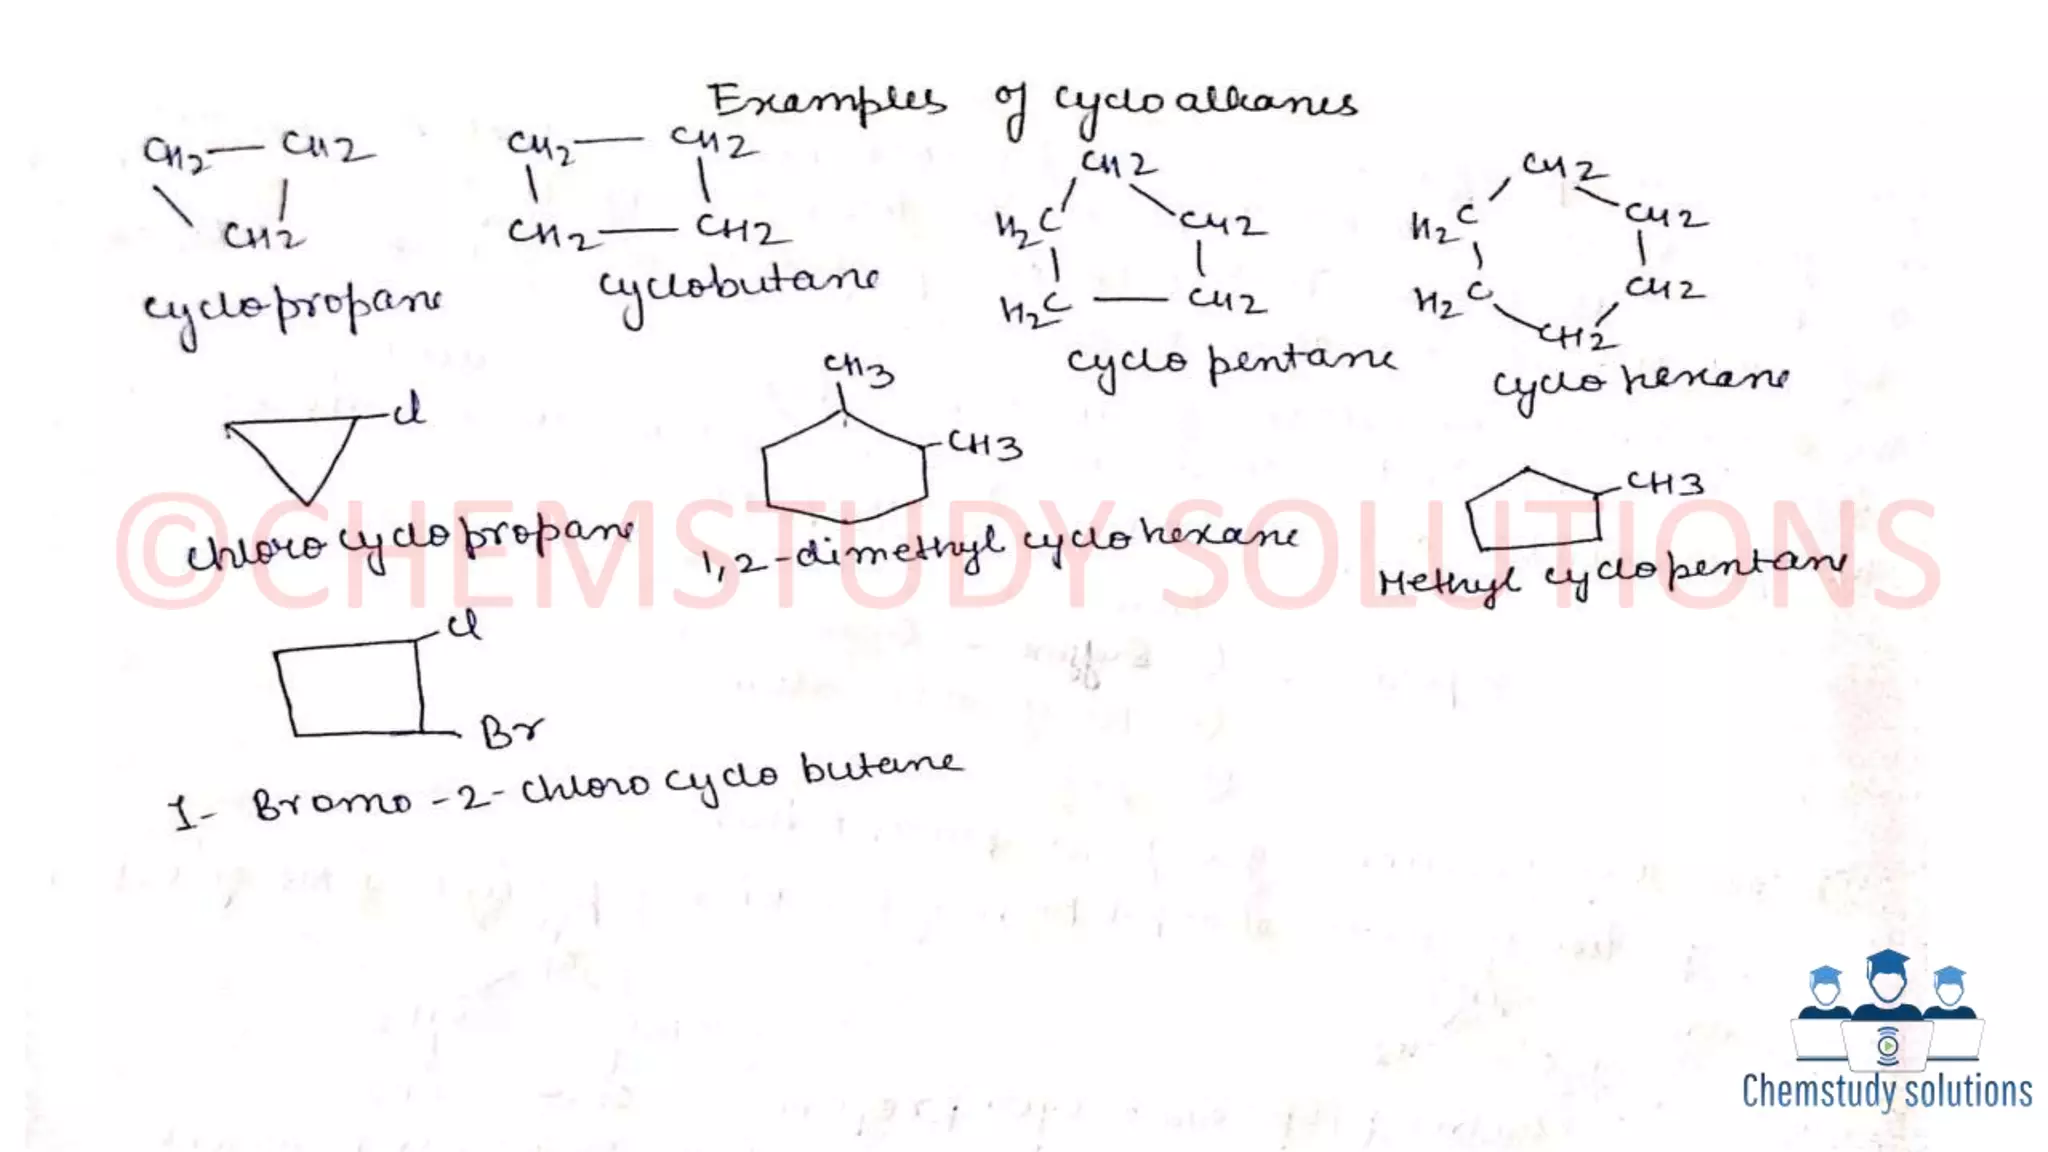 Examples of cycloalkanes
CH2 CH2
CH2
cyclopropane
CH2 CH2
CH2 CH2
cyclobutane
CH2
H2C CH2
H2C CH2
cyclo pentane
CH2
H2C CH2
H2C CH2
CH2
cyclo hexane
Cl
chloro cyclo propane
CH3
CH3
1,2-dimethyl cyclo hexane
CH3
Methyl cyclopentane
Cl
Br
1- Bromo-2-chloro cyclo butane
©CHEMSTUDY SOLUTIONS
Chemstudy solutions